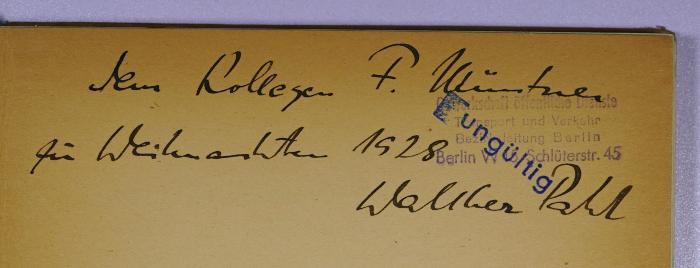 dem Kollegen F. Münstner
zu Weihnachten 1928
Walther Pahl
Gewerkschaft öffentliche Dienste
Transport und Verkehr
Bezirksleitung Berlin
Berlin W 15, Schlüterstr. 45
ungültig